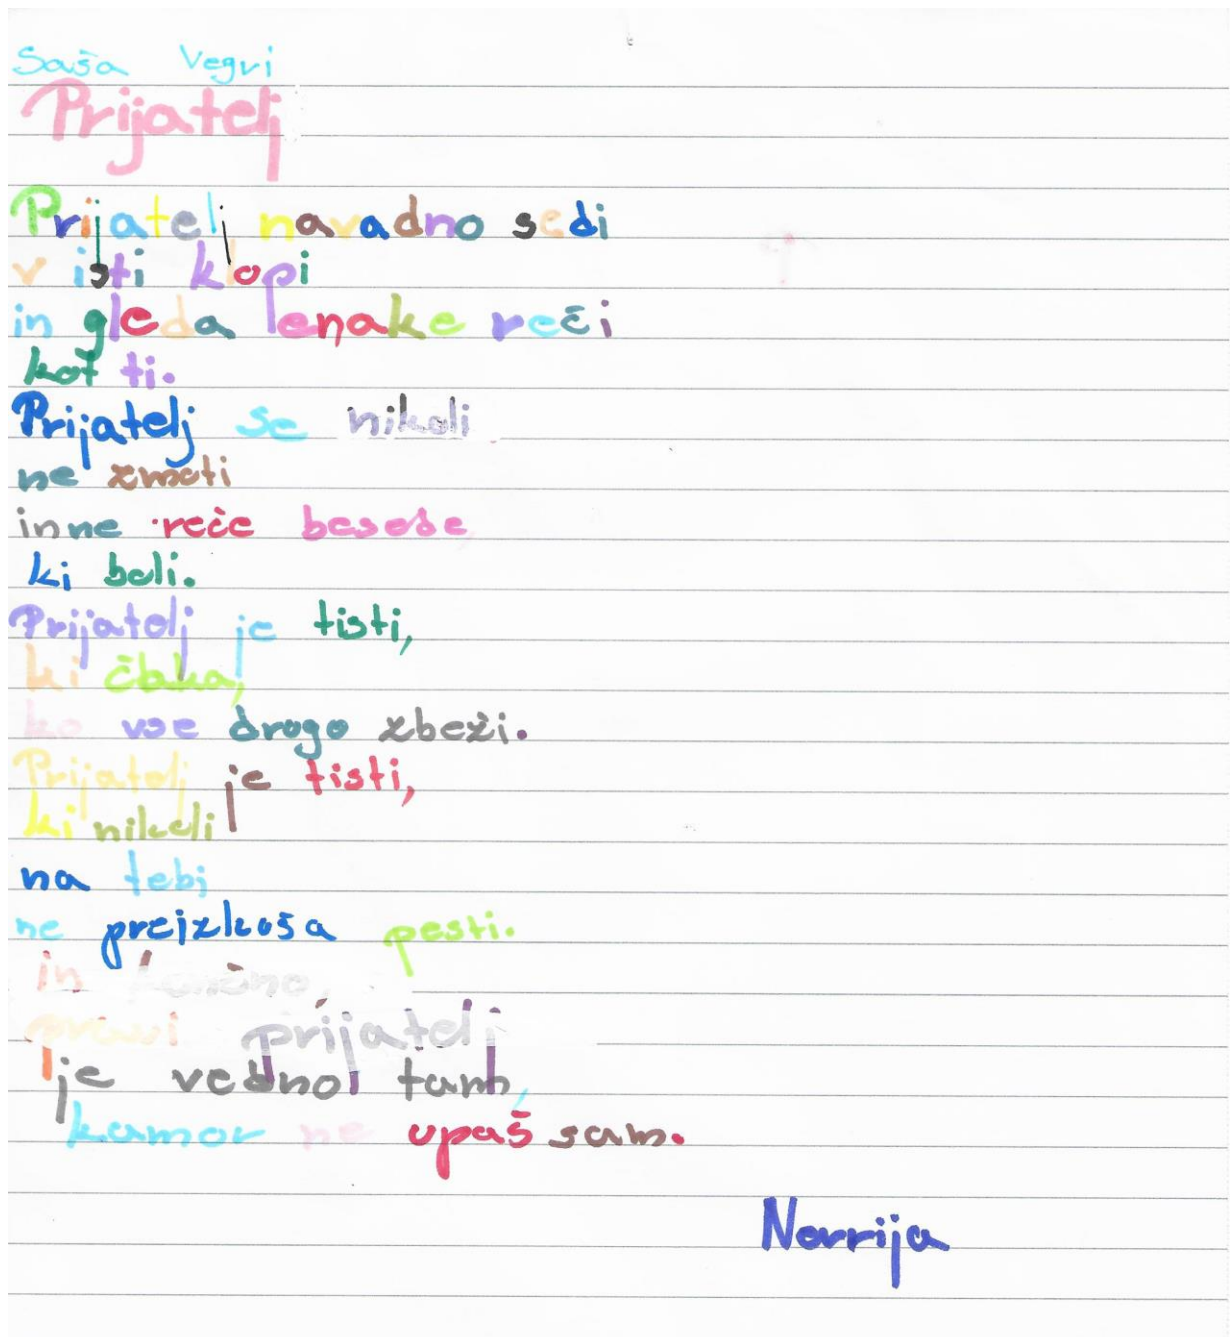 Saša Vegri
Prijatelj
Prijatelj navadno sedi
v isti klopi
in gleda enake reči
kot ti.
Prijatelj se nikoli
ne zmoti
in ne reče besede
ki boli.
Prijatelj je tisti,
ki čaka,
ko vse drogo zbeži.
Prijatelj je tisti,
ki nikoli
na tebi
ne preizkoša pesti.
in končno,
pravi prijatelj
je vedno tam,
kamor ne upaš sam.
Norrija